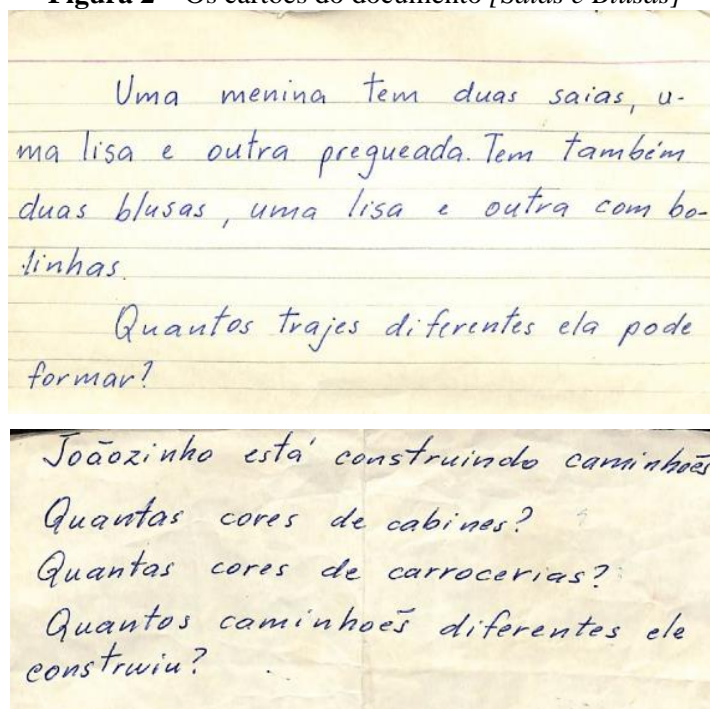 Figura 2 – Os cartões do documento [Saias e Blusas]
Uma menina tem duas saias, u-
ma lisa e outra pregueada. Tem também
duas blusas, uma lisa e outra com bo-
linhas.
Quantos trajes diferentes ela pode
formar?
Joãozinho está construindo caminhões
Quantas cores de cabines?
Quantas cores de carrocerias?
Quantos caminhões diferentes ele
construiu?